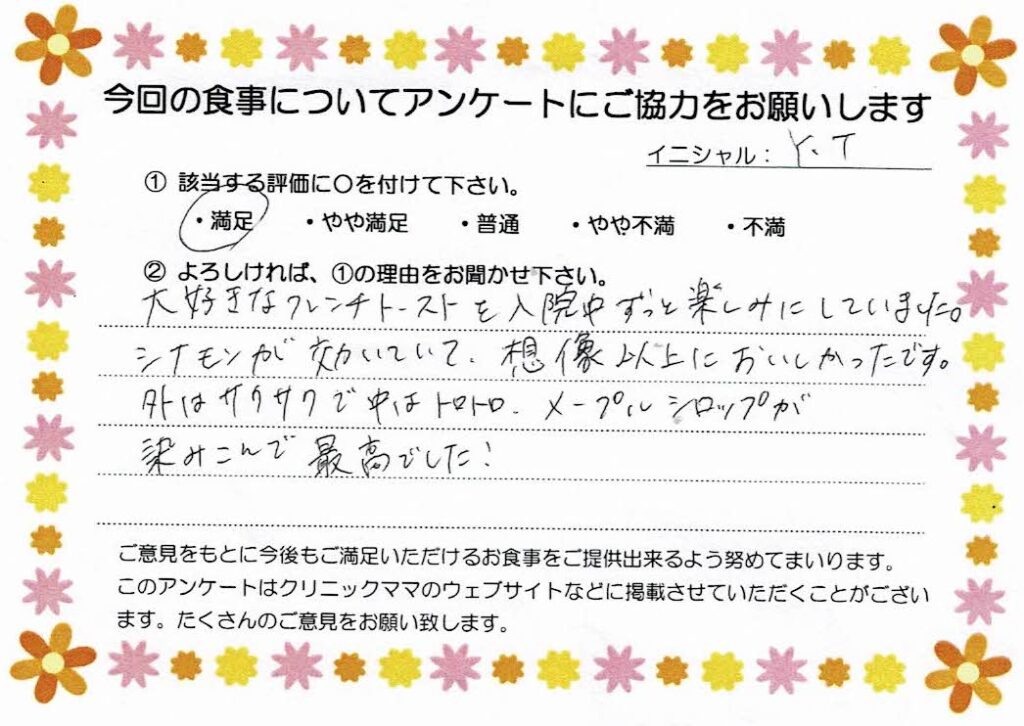 今回の食事についてアンケートにご協力をお願いします
イニシャル： Y.T
① 該当する評価に〇を付けて下さい。
・満足 ・やや満足 ・普通 ・やや不満 ・不満
② よろしければ、①の理由をお聞かせ下さい。
大好きなフレンチトーストを入院中ずっと楽しみにしていました。
シナモンが効いていて、想像以上においしかったです。
外はサクサクで中はトロトロ、メープルシロップが
染みこんで最高でした!
ご意見をもとに今後もご満足いただけるお食事をご提供出来るよう努めてまいります。
このアンケートはクリニックママのウェブサイトなどに掲載させていただくことがござい
ます。たくさんのご意見をお願い致します。